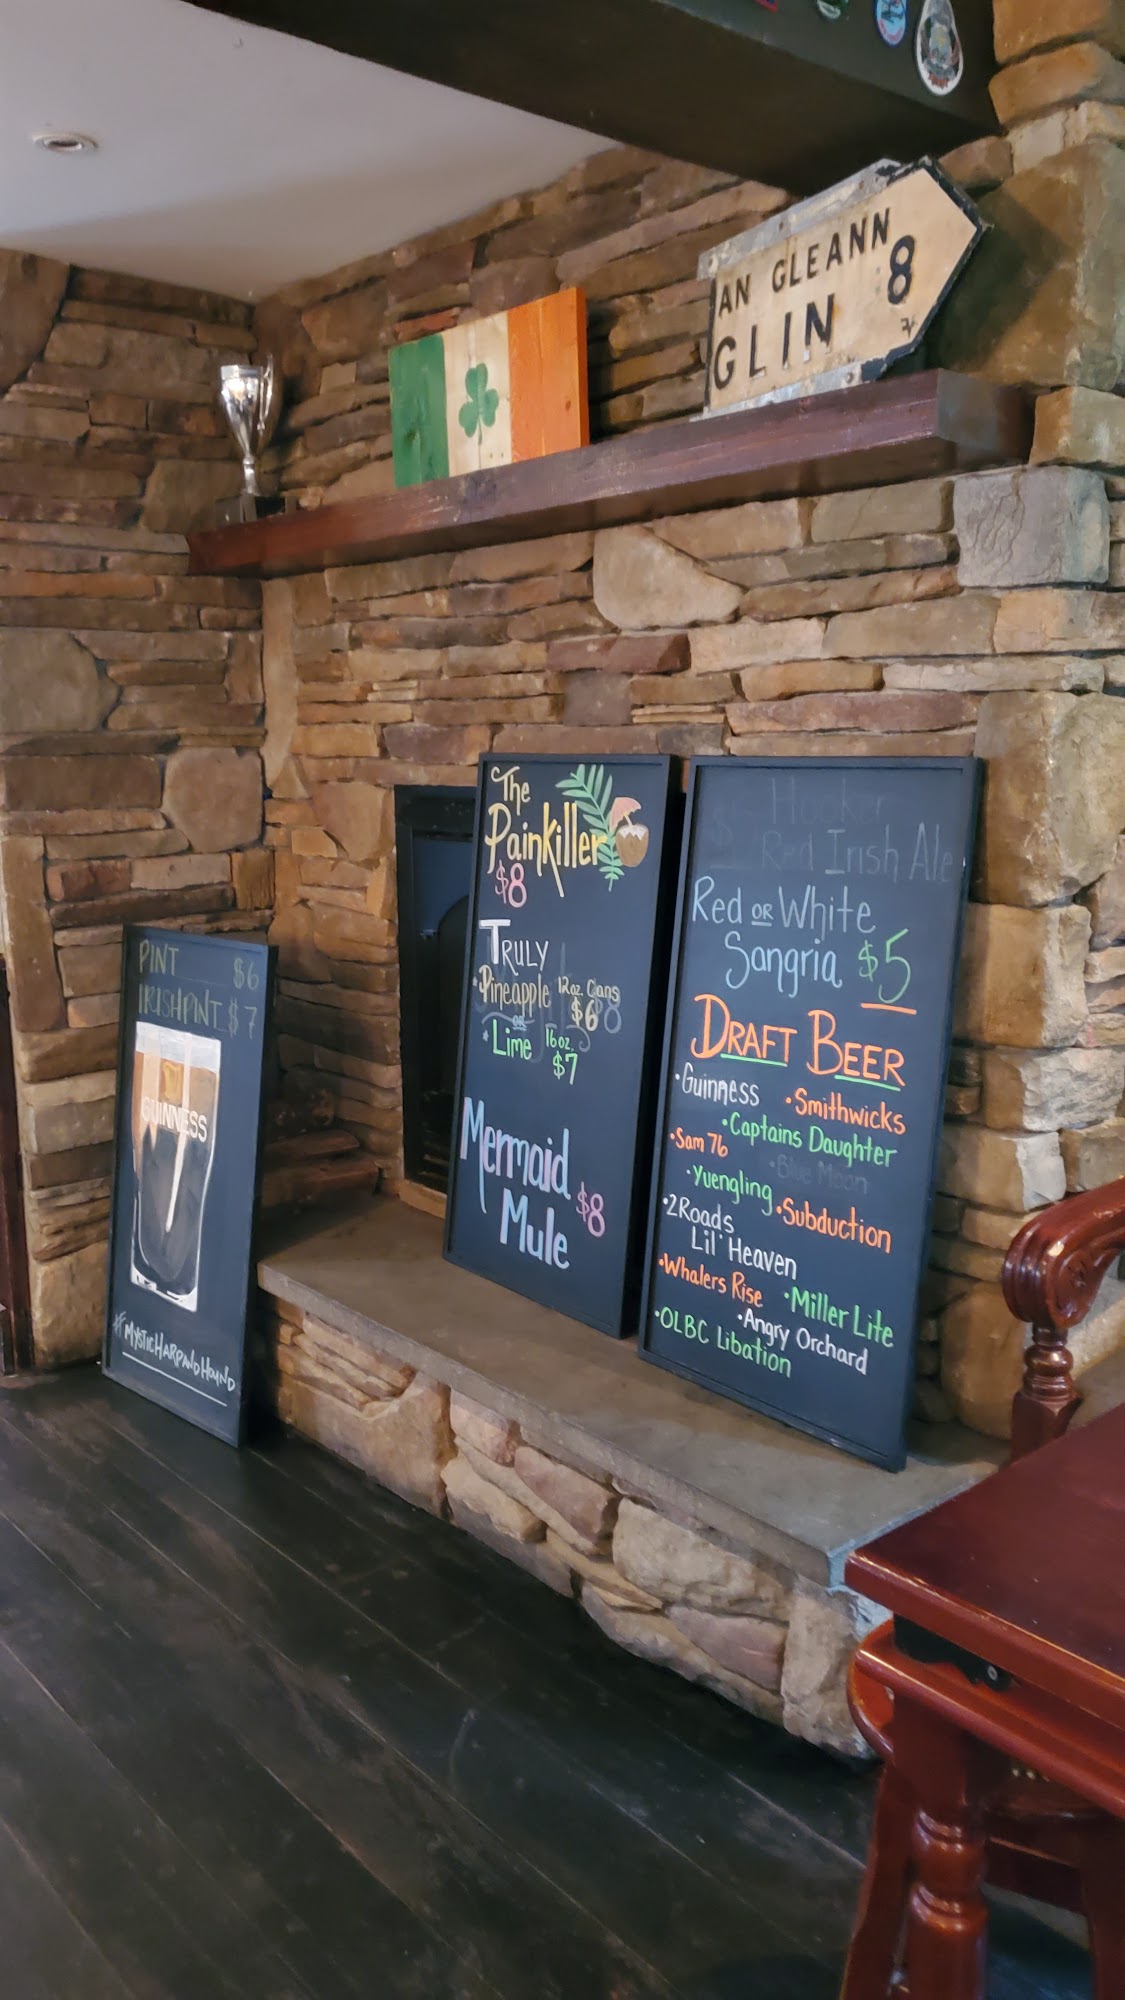 AN GLEANN
GLIN 8
PINT $6
IRISH PINT $7
GUINNESS
#MYSTICHARPANDHOUND
The
Painkiller
$8
TRULY
• Pineapple 12oz. Cans $6
OR
• Lime 16oz. $7
Mermaid
Mule $8
Hooker
Red Irish Ale
Red OR White
Sangria $5
DRAFT BEER
• Guinness • Smithwicks
• Captains Daughter
• Sam 76
• Blue Moon
• Yuengling • Subduction
• 2Roads
Lil' Heaven
• Whalers Rise • Miller Lite
• Angry Orchard
• OLBC Libation